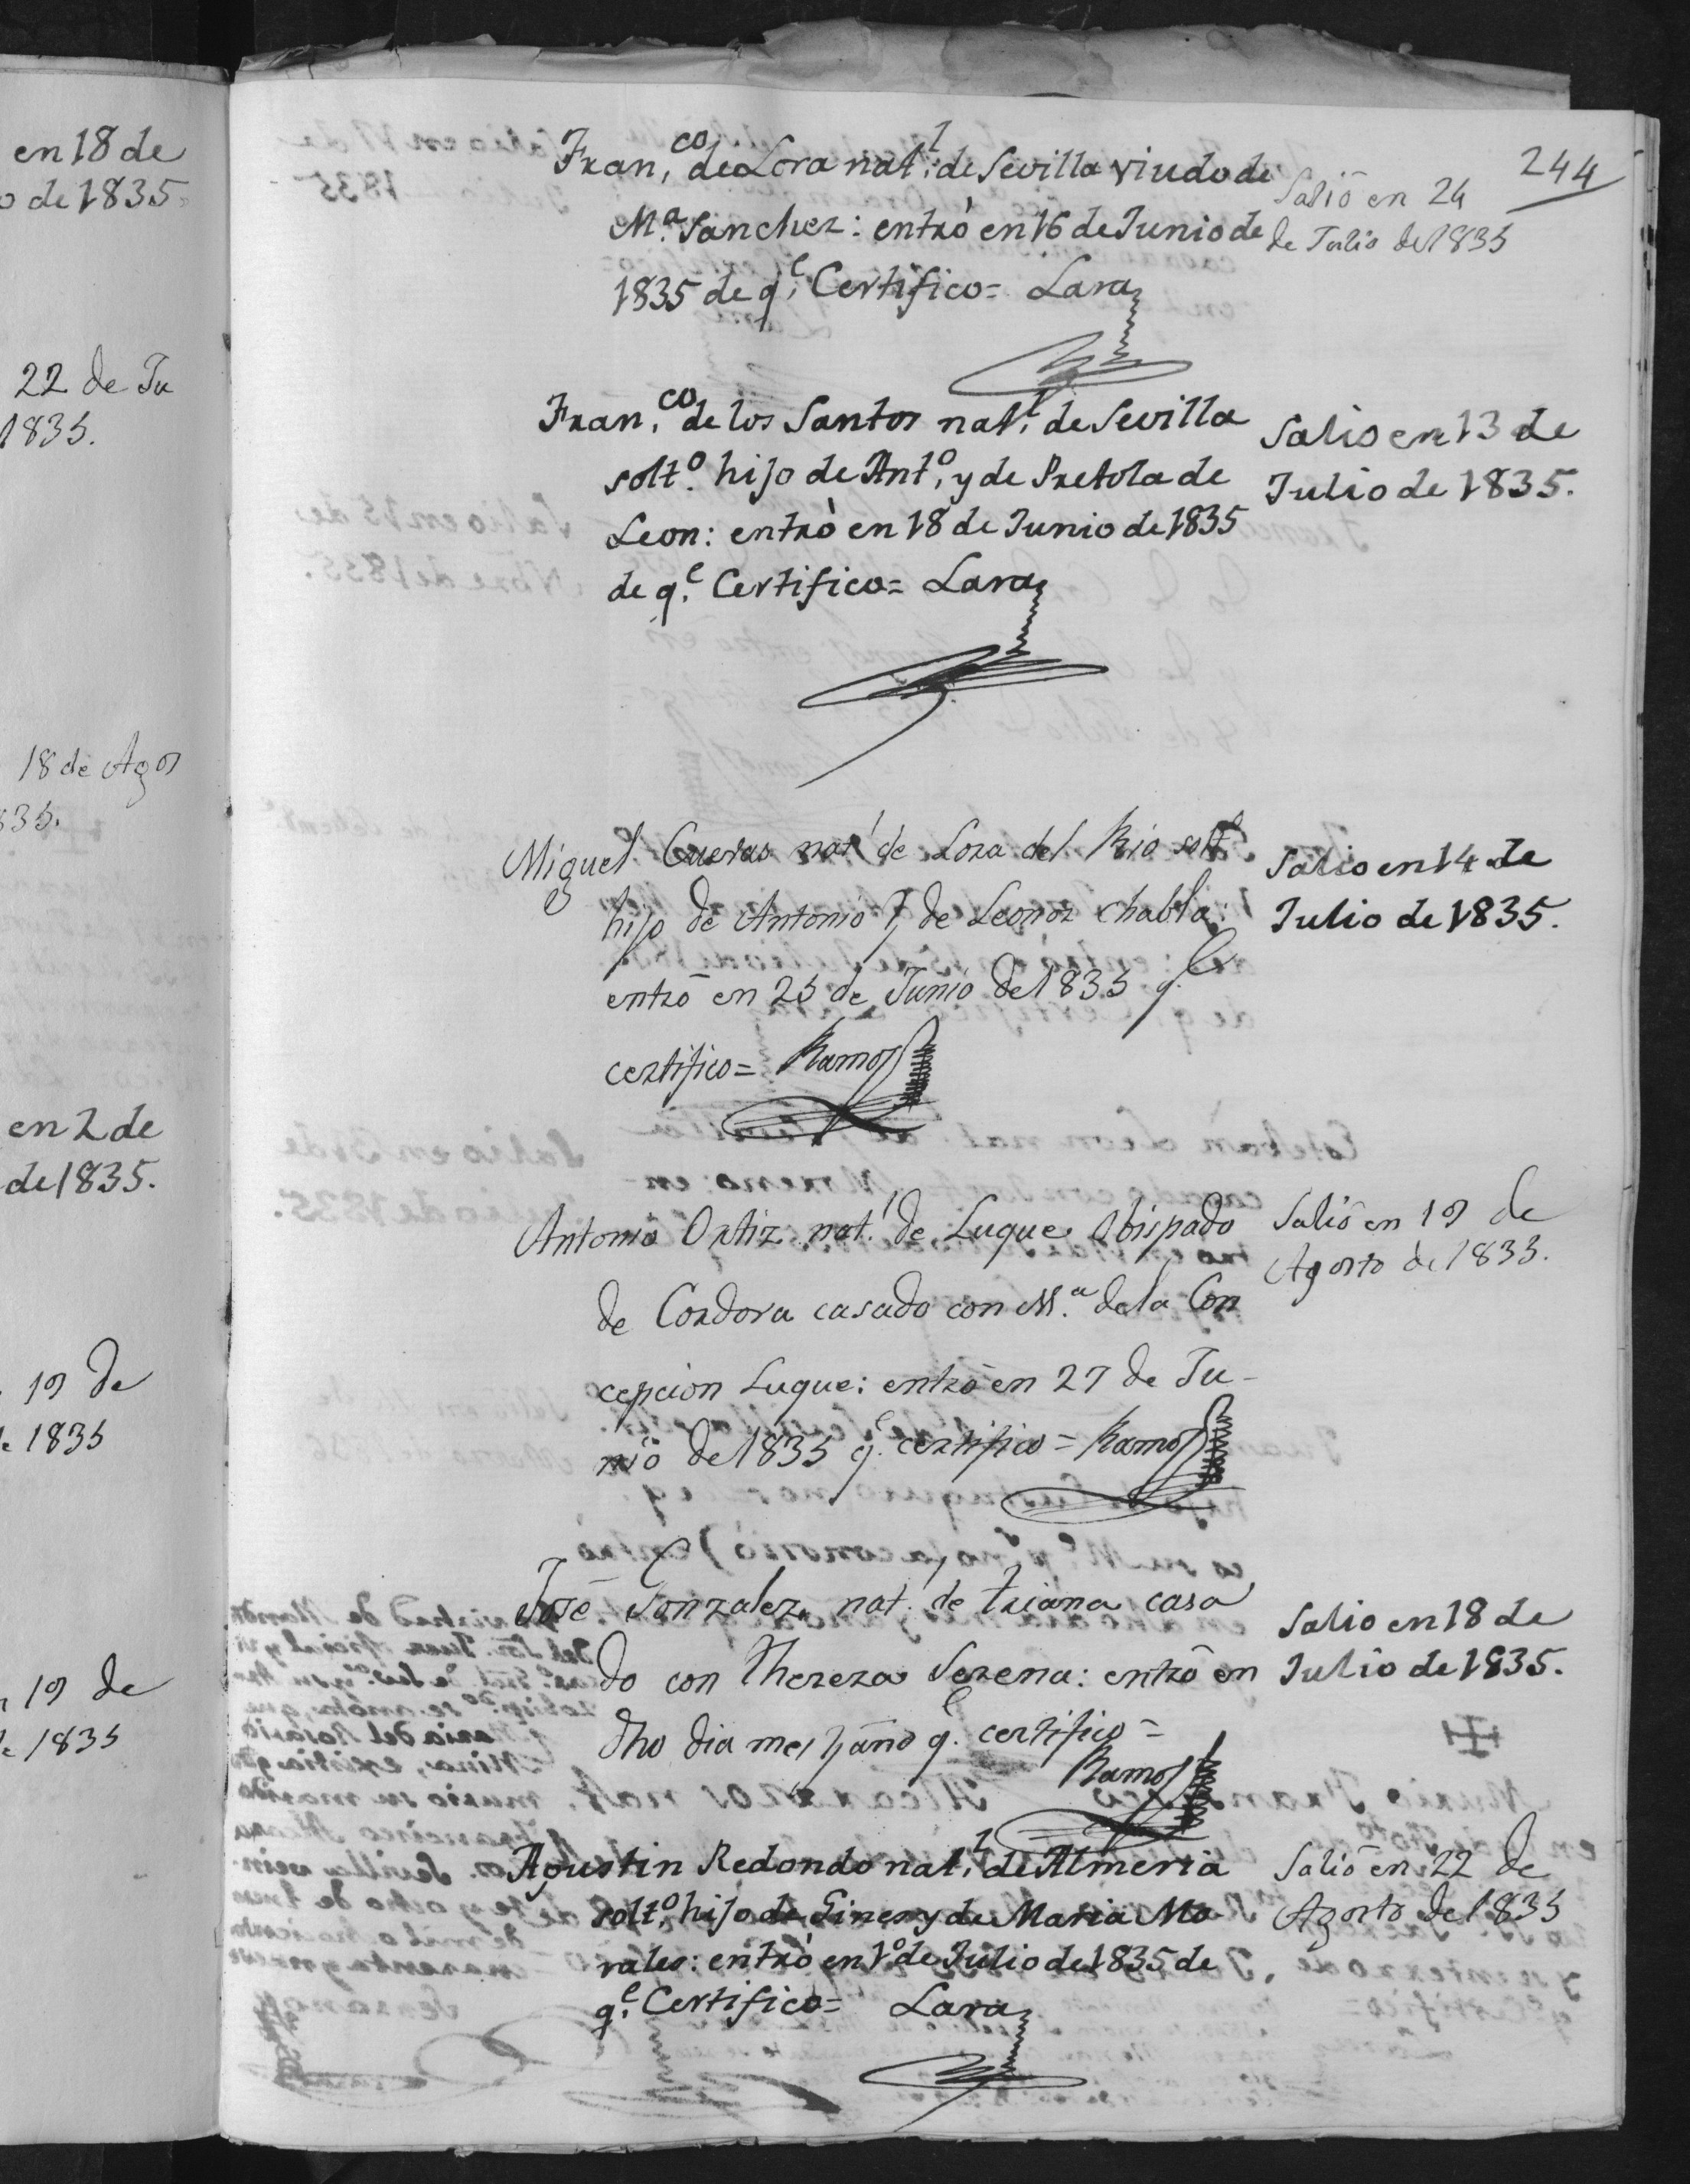 244
Fran,co de Lora nat,l de Sevilla viudo de
Mª Sanchez: entrò en 16 de Junio de
1835 de q,e Certifico= Lara
Salió en 24
de Julio de 1835
Fran,co de los Santos nat,l de Sevilla
solt.o hijo de Ant,o y de de
Leon: entrò en 18 de Junio de 1835
de q,e Certifico= Lara
Salio en 13 de
Julio de 1835.
Miguel Cuevas nat.l de Lora del Rio solt.o
hijo de Antonio y de Leonor Chabla:
entró en 25 de Junio de 1835 q.e
certifico= Ramos
Salio en 14 de
Julio de 1835.
Antonio Ortiz nat.l de Luque Obispado
de Cordova casado con M.a de la Con
cepcion Luque: entró en 27 de Ju-
nio de 1835 q.e certifico= Ramos
Salió en 19 de
Agosto de 1835.
José Gonzalez nat.l de triana casa
do con Thereza Serena: entró en
dho dia mes y año q.e certifico=
Ramos
Salio en 18 de
Julio de 1835.
Agustin Redondo nat,l de Almeria
solt,o hijo de Gines y de Maria Mo
rales: entrò en 1.o de Julio de 1835 de
q,e Certifico= Lara
Salió en 22 de
Agosto de 1835
en 18 de
o de 1835.
22 de Ju
1835.
18 de Agos
835.
en 2 de
de 1835.
19 de
de 1835
19 de
de 1835